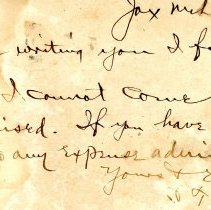 Jax
writing you I f
I cannot come
ised. If you have
any expense advis
Yours